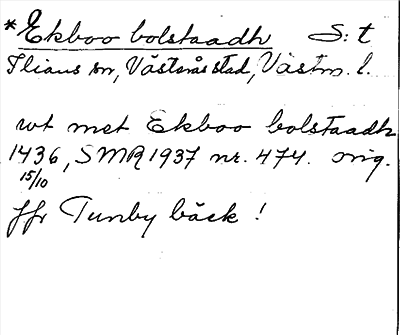 *Ekboo bolstaadh S:t
Ilians sn, Västerås stad, Västm. l.
wt met Ekboo bolstaadh
1436, SMR 1937 nr. 474. orig.
15/10
jfr Tunby bäck!